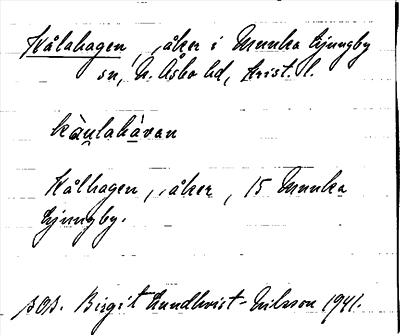 Kålahagen, åker i Munka Ljungby
sn, N. Åsbo hd, Krist. l.
kàu̯lahàvan
Kålhagen, åker, 15 Munka
Ljungby.
Birgit Lundkvist-Nilsson 1941.